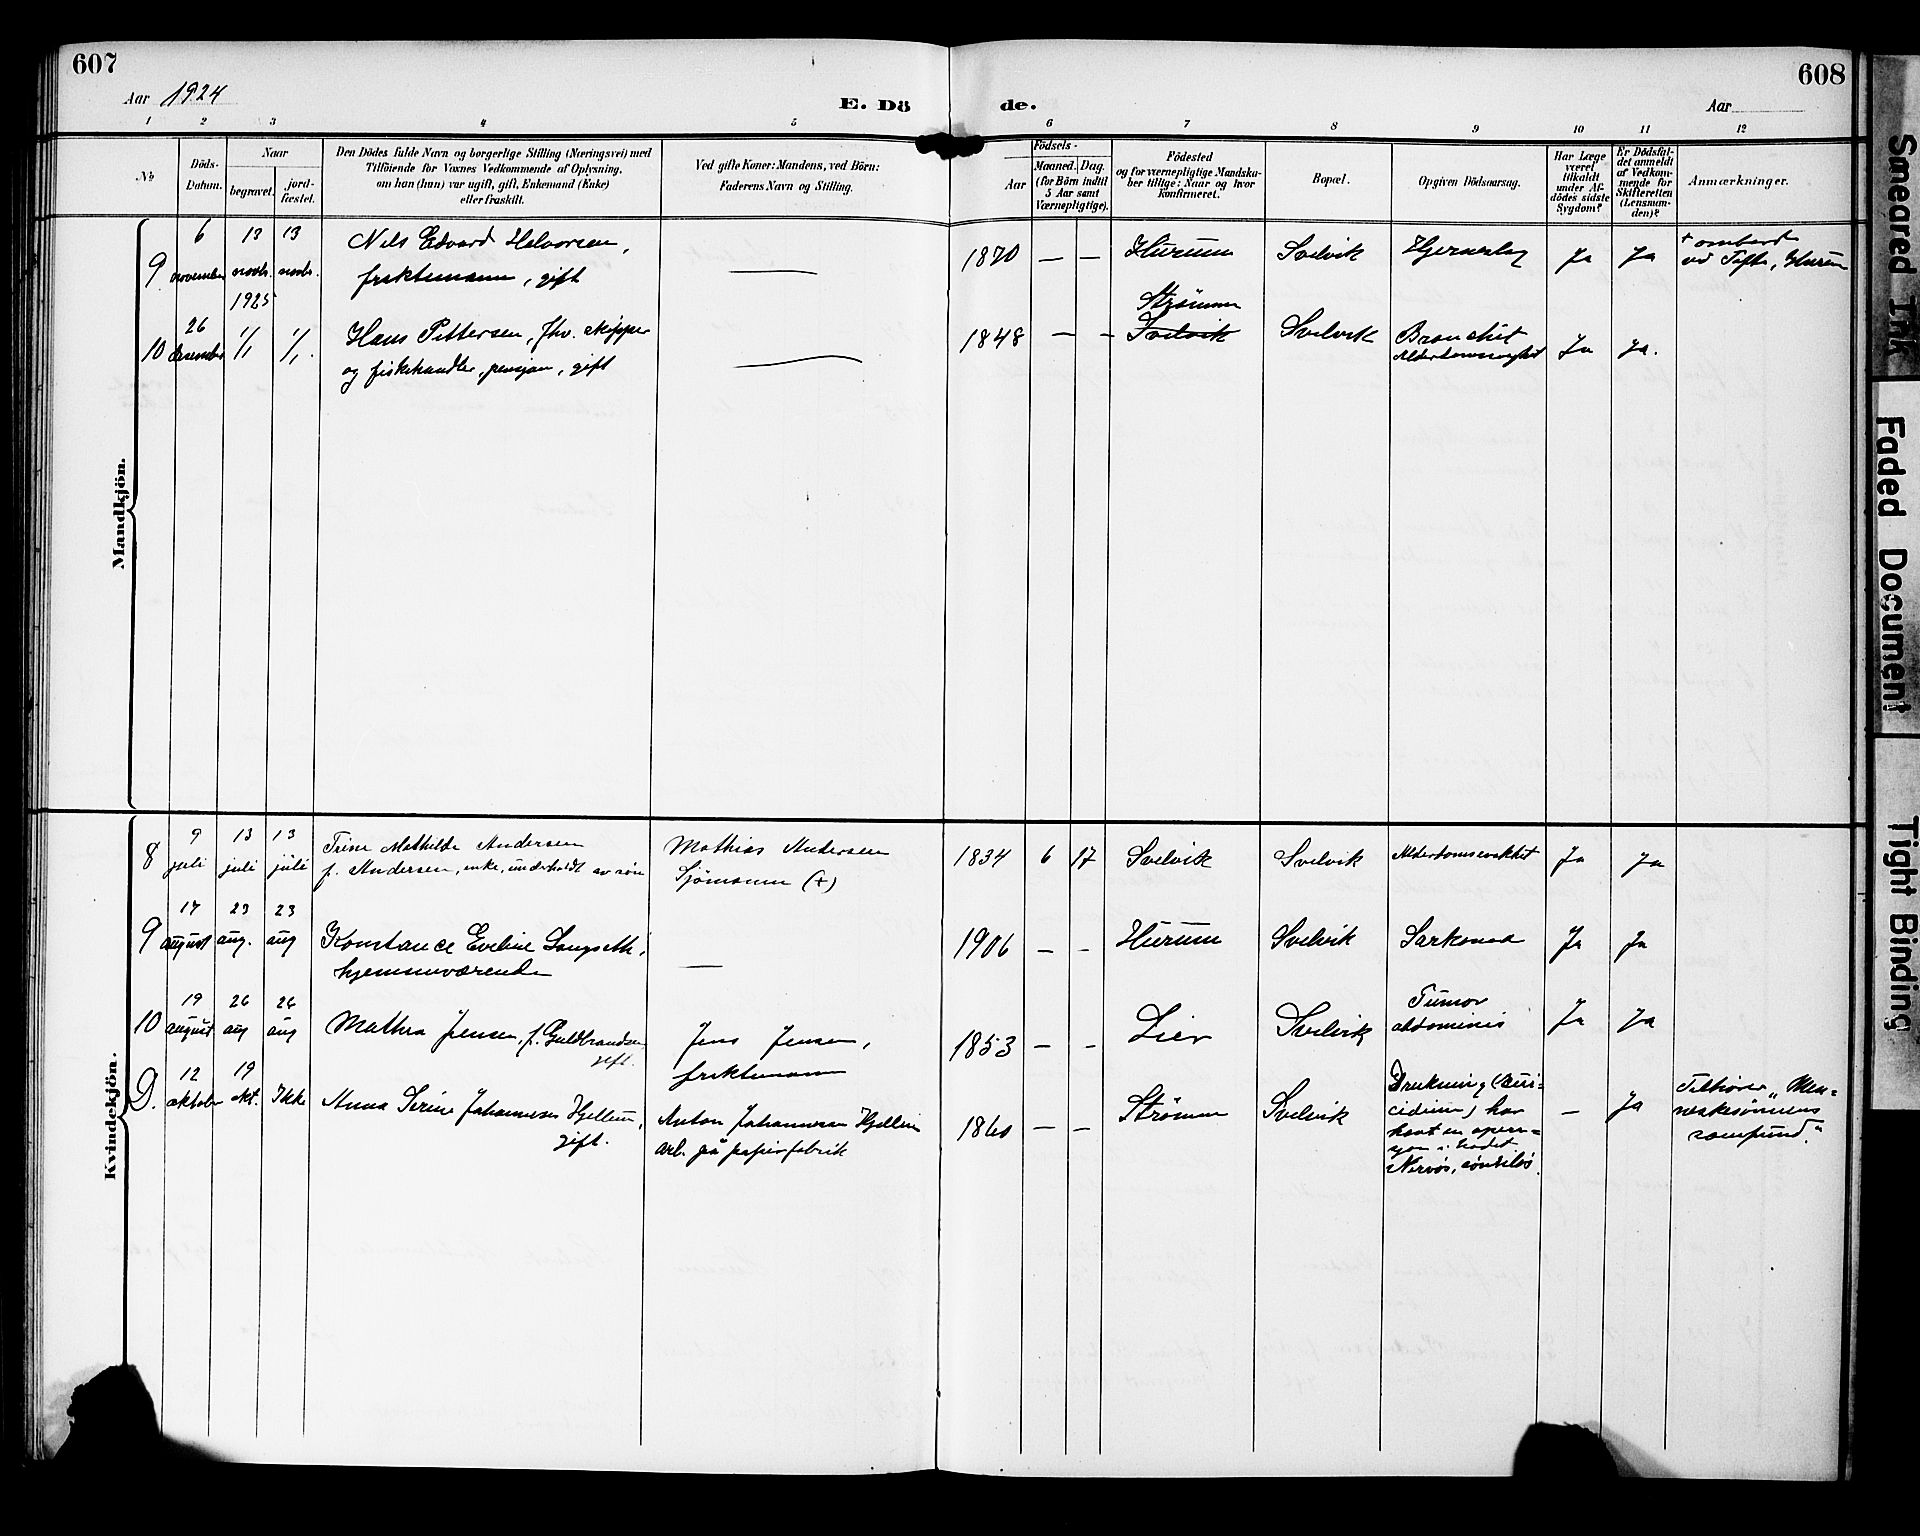 607
608
Aar 1924
E. Dö
de.
Aar
1 2 3 4 5 6 7 8 9 10 11 12
No
Döds-
Datum.
Naar
begravet.
jord-
fæstet.
Den Dödes fulde Navn og borgerlige Stilling (Næringsvei) med
Tilföiende for Voxnes Vedkommende af Oplysning,
om han (hun) var ugift, gift, Enkemand (Enke)
eller fraskilt.
Ved gifte Koner: Mandens, ved Börn:
Faderens Navn og Stilling.
Födsels-
Aar
Maaned. Dag.
(for Börn indtil
5 Aar samt
Værnepligtige).
Födested
og for værnepligtige Mandska-
ber tillige: Naar og hvor
konfirmeret.
Bopæl.
Opgiven Dödsaarsag.
Har Læge
været
tilkaldt
under Af-
dödes sidste
Sygdom?
Er Dödsfal-
det anmeldt
af Vedkom-
mende for
Skifteretten
(Lensman-
den)?
Anmærkninger.
Mandkjön.
9
6
november
13
novbr.
13
novbr.
Nils Edvard Halvorsen,
fraktemann, gift
1870 — —
Hurum
Svelvik
Hjerneslag
Ja
Ja
+ ombord
ved Tofte, Hurum
10
26
desember
1925
1/1
1/1.
Hans Pettersen, fhv. skipper
og fiskehandler, pensjon, gift
1848 — —
Strömm
Svelvik
Svelvik
Bronchit
Alderdomssvaghet
Ja
Ja.
Kvindekjön.
8
9
juli
13
juli
13
juli
Trine Mathilde Andersen
f. Andersen, enke, underholdt av sön
Mathias Andersen
Sjömann (+)
1834 6 17
Svelvik
Svelvik
Alderdomssvakhet
Ja
Ja
9
17
august
23
aug.
23
aug
Konstance Eveline Langseth,
hjemmeværende
—
1906 — —
Hurum
Svelvik
Sarkomed
Ja
Ja
10
19
august
26
aug
26
aug
Mathea Jensen, f. Guldbrandsen
gift.
Jens Jensen,
fraktemann
1853 — —
Lier
Svelvik
Tumor
abdominis
Ja
Ja
D.
12
oktober
19
okt.
Ikke
Anna Serine Johannesen Hjellum,
gift.
Anton Johannesen Hjellum
arb. på papirfabrik
1860 — —
Strömm
Svelvik
Drukning (sui-
cidium) har
havt en opera-
sjon i hodet
Nervös, sövnlös.
—
Ja
Tilhörer „Men-
neskesönnens
samfund."
Smeared Ink
Faded Document
Tight Binding